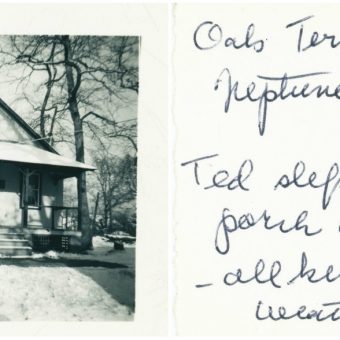 Oabs Ter
Neptune
Ted slep
porch
-all ki
weat